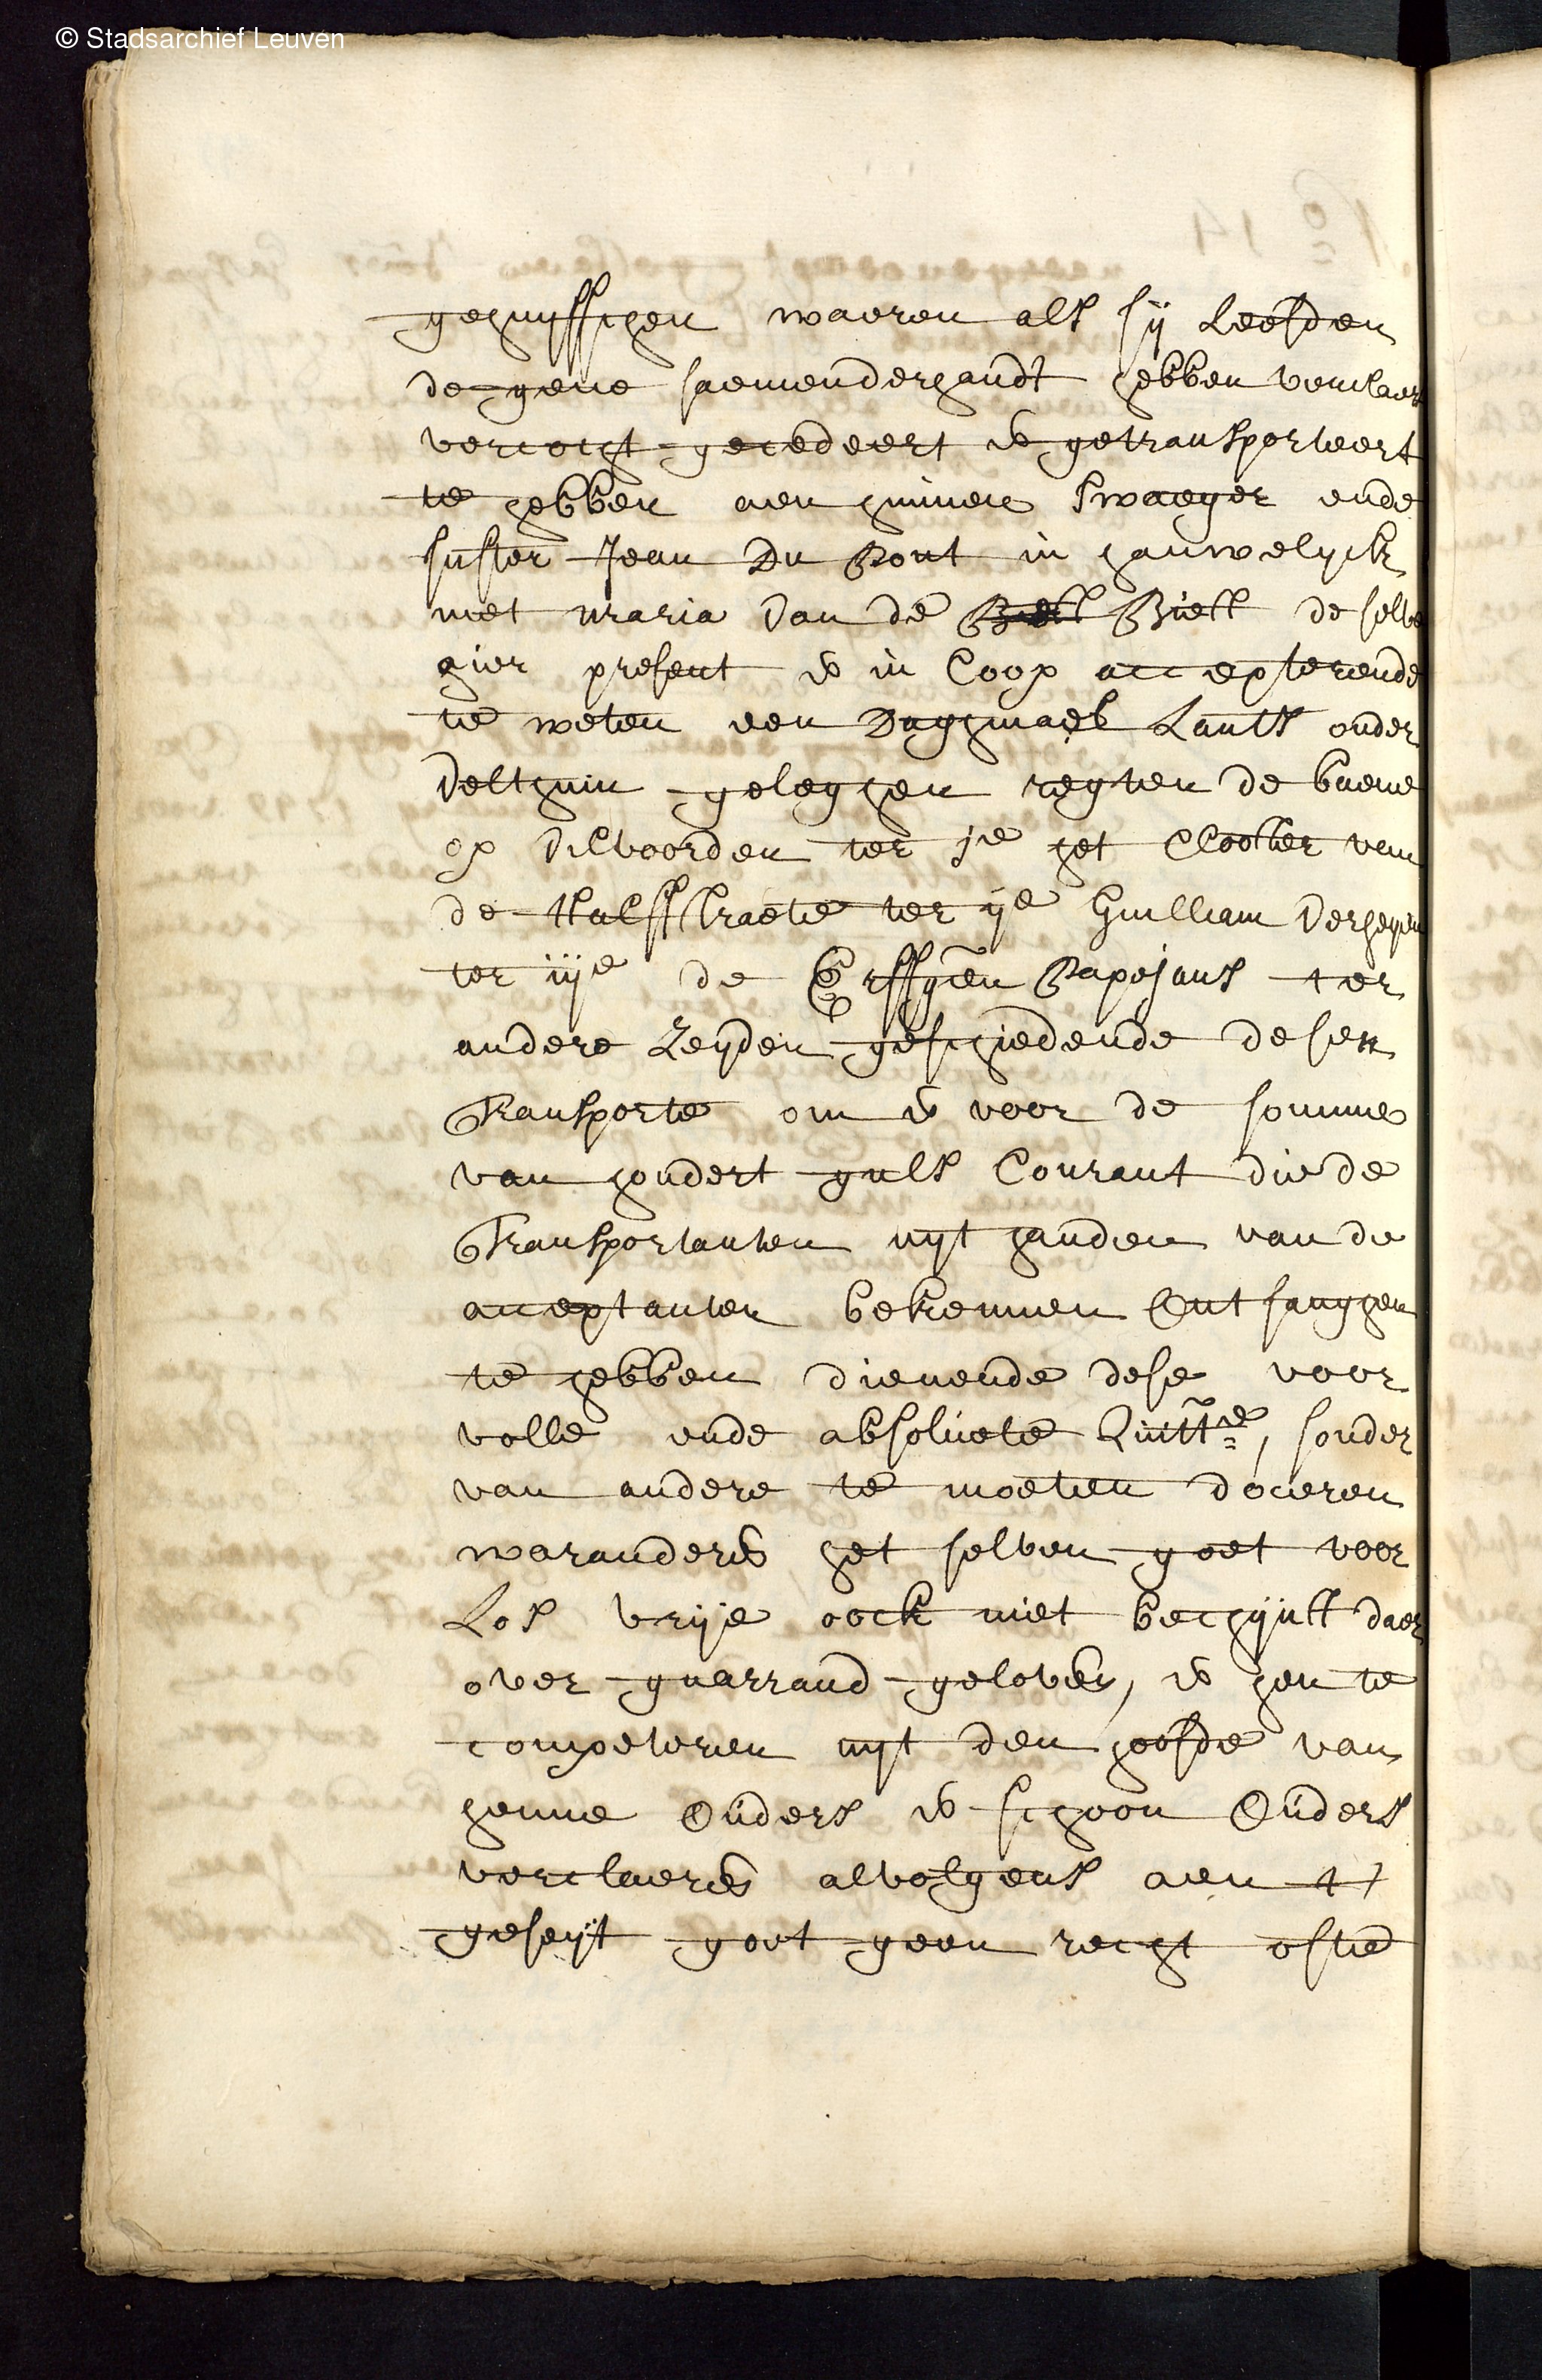 © Stadsarchief Leuven
gehuysschen waeren als sij Leefden
de gene saemenderhandt hebben verclaert
vercocht gecedeert ende getransporteert
te hebben aen hunnen Swaeger ende
suster Jean Du Pont in houwelyck
met maria Van de Biett de selve
hier present ende in Coop accepterende
te weten een Daghmael Lants onder
Velthum geleghen reghten de baene
op Vilvoorden ter je het Clooster van
de Halffstraete ter ije Guilliam Verheyen
ter iije de Erffgen Papejans ter
andere Zeyden geschiedende desen
Transporte om ende voor de somme
van hondert guls Courant die de
Transportanten uyt handen van de
acceptanten bekennen Ontfanghen
te hebben dienende dese voor
volle ende absoluete Quitte, sonder
van andere te moeten doceren
waranderende het selven goet voor
Los vrije oock niet becheynst daer
over guarrand gelovende, ende hen te
competeren uyt den hoofde van
henne Ouders ende schoon Ouders
verclaerende alvolgens aen t
geseyt goet geen recht ofte